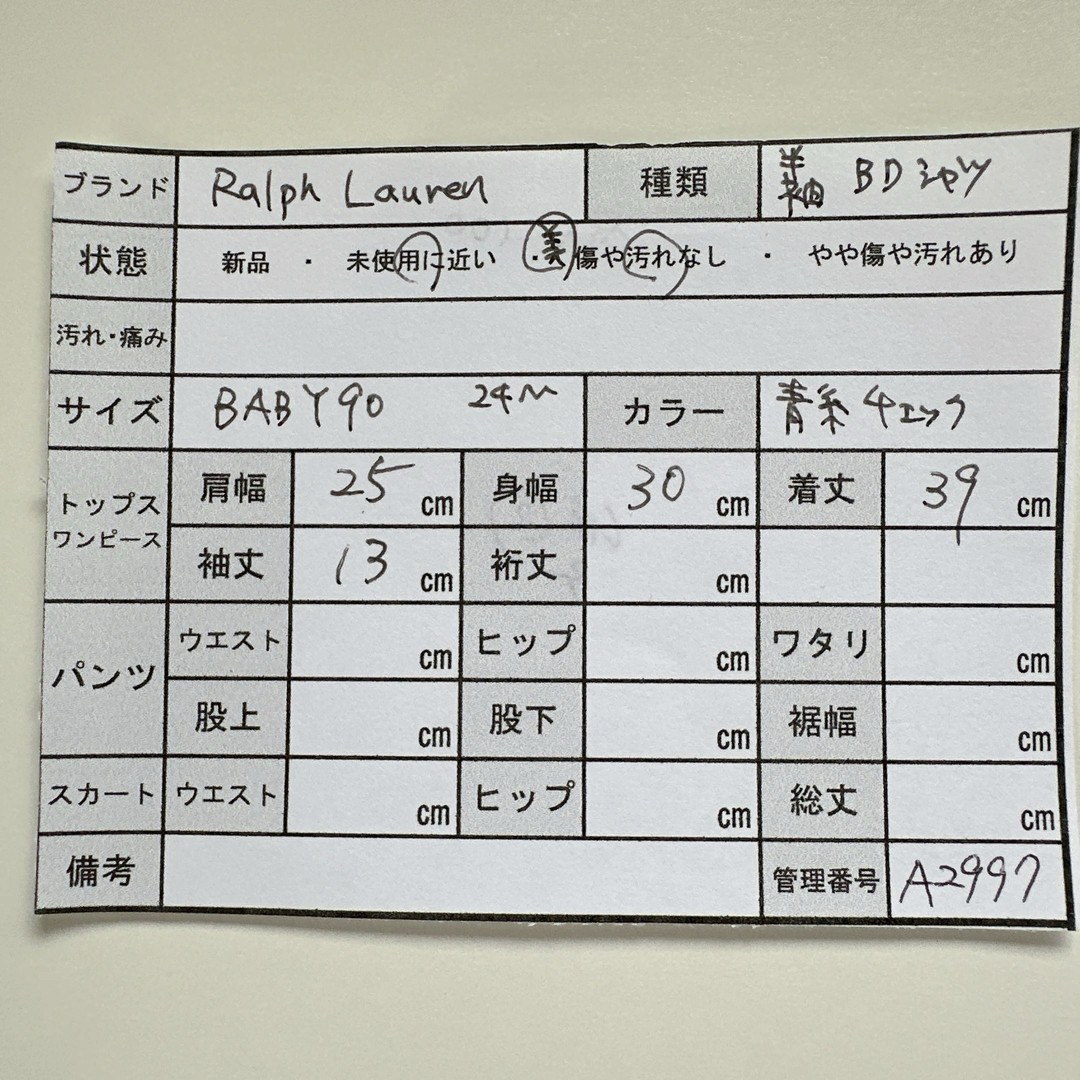 ブランド Ralph Lauren 種類 半袖 BDシャツ
状態 新品 ・ 未使用に近い ・ 美 傷や汚れなし ・ やや傷や汚れあり
汚れ・痛み
サイズ BABY90 24M カラー 青系チェック
トップス ワンピース 肩幅 25 cm 身幅 30 cm 着丈 39 cm
袖丈 13 cm 裄丈 cm
パンツ ウエスト cm ヒップ cm ワタリ cm
股上 cm 股下 cm 裾幅 cm
スカート ウエスト cm ヒップ cm 総丈 cm
備考 管理番号 A2997